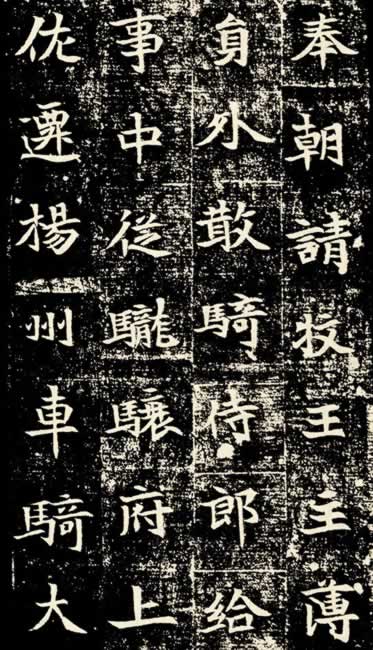 奉朝請牧王主薄
貟外散騎侍郎給
事中從䮾驤府上
佐遷楊州車騎大